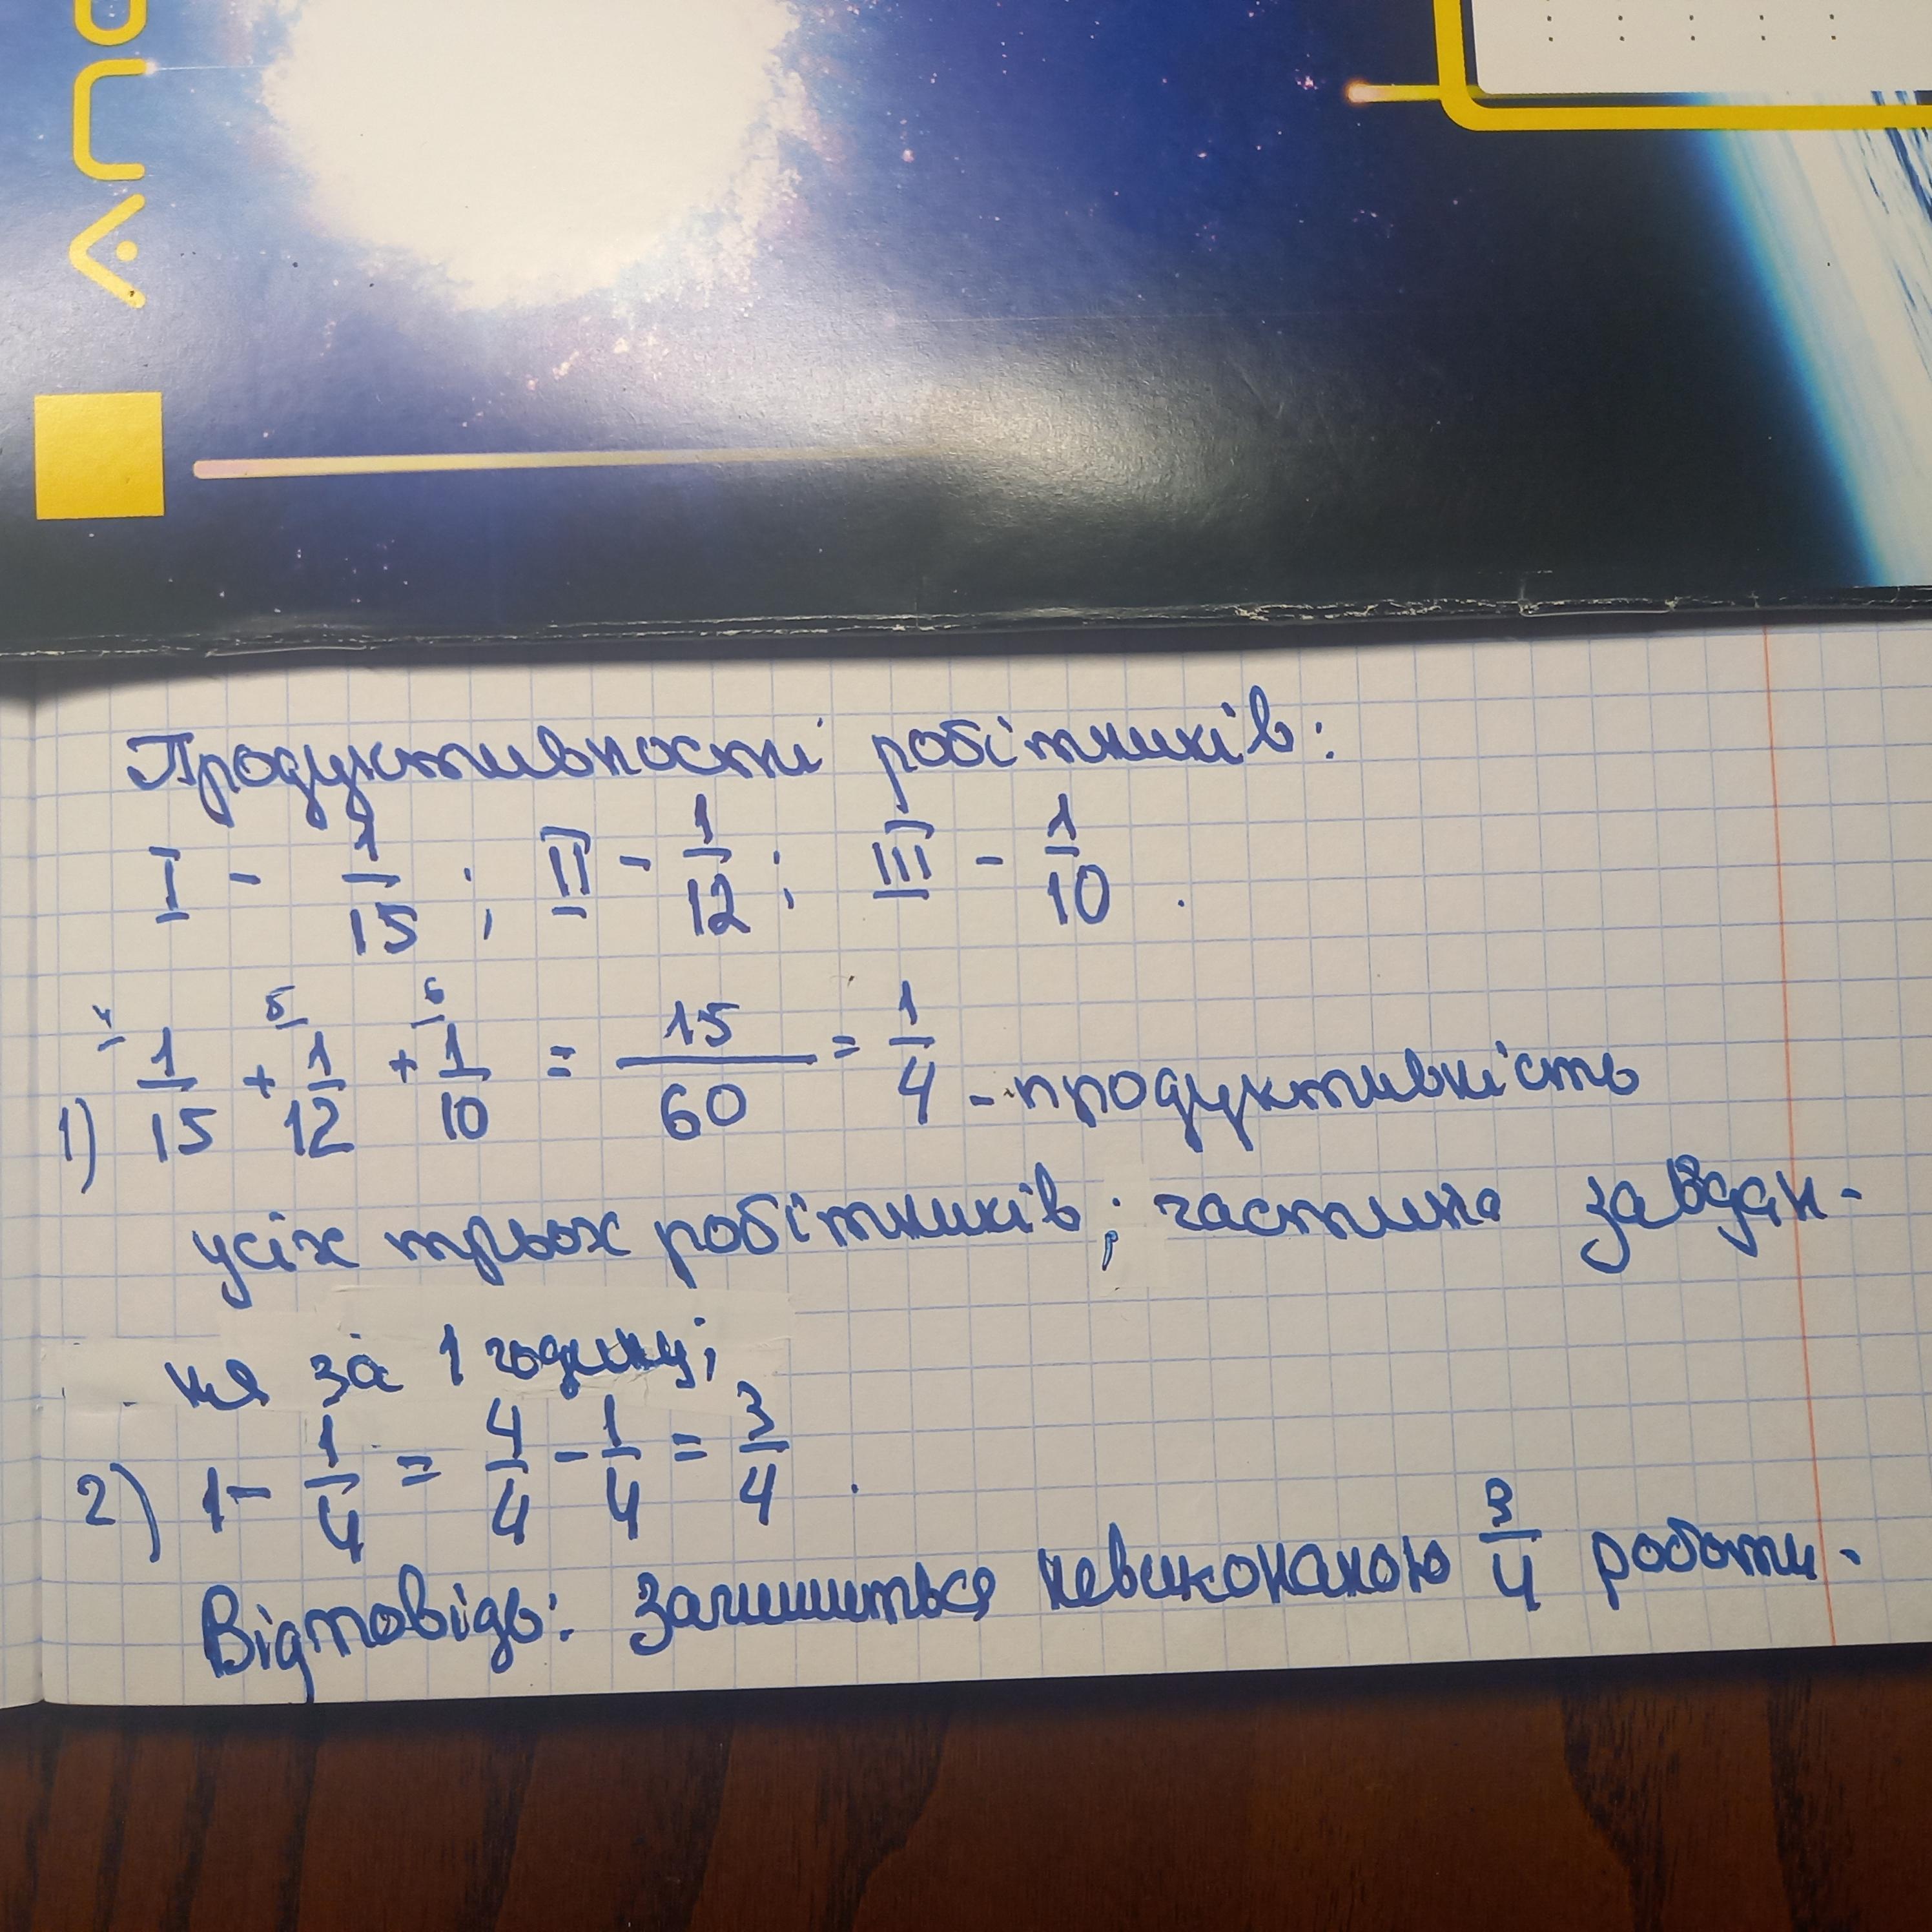 Продуктивності робітників:
I - 1/15 ; II - 1/12 ; III - 1/10 .
1) 1/15 (4) + 1/12 (5) + 1/10 (6) = 15/60 = 1/4 - продуктивність
усіх трьох робітників; частина завдан-
ня за 1 годину;
2) 1 - 1/4 = 4/4 - 1/4 = 3/4 .
Відповідь: залишиться невиконаною 3/4 роботи.